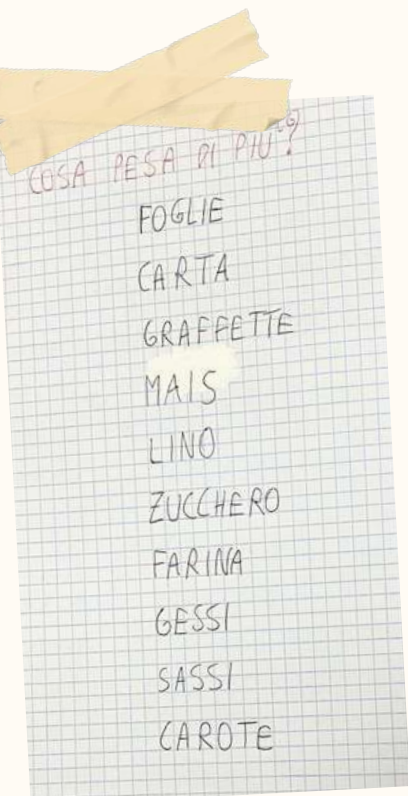 COSA PESA DI PIÙ?
FOGLIE
CARTA
GRAFFETTE
MAIS
LINO
ZUCCHERO
FARINA
GESSI
SASSI
CAROTE